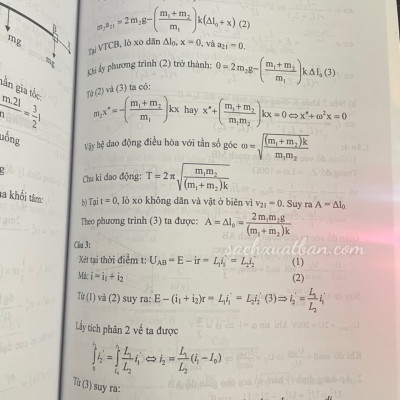 mg
mg
m₂a₂₁ = 2m₂g – ((m₁ + m₂)/m₁) k(Δl₀ + x) (2)
Tại VTCB, lò xo dãn Δl₀, x = 0, và a₂₁ = 0.
Khi ấy phương trình (2) trở thành: 0 = 2m₂g – ((m₁ + m₂)/m₁) kΔl₀ (3)
Từ (2) và (3) ta có:
m₂x" = –((m₁ + m₂)/m₁) kx hay x" + ((m₁ + m₂)/(m₁m₂)) kx = 0 ⇔ x" + ω²x = 0
Vậy hệ dao động điều hòa với tần số góc ω = √((m₁ + m₂)k/(m₁m₂))
Chu kì dao động: T = 2π√(m₁m₂/((m₁ + m₂)k))
b) Tại t = 0, lò xo không dãn và vật ở biên vì v₂₁ = 0. Suy ra A = Δl₀
Theo phương trình (3) ta được: A = Δl₀ = 2m₁m₂g/((m₁ + m₂)k)
sachxuatban.com
Câu 3:
Xét tại thời điểm t: U_AB = E – ir = L₁i₁' = L₂i₂' (1)
Mà: i = i₁ + i₂ (2)
Từ (1) và (2) suy ra: E – (i₁ + i₂)r = L₁i₁' = L₂i₂' (3) ⇒ i₂' = (L₁/L₂) i₁'
Lấy tích phân 2 vế ta được
⇔ i₂ = (L₁/L₂)(i₁ – I₀)
Từ (3) suy ra:
gia tốc:
m.2l
3/2 l
uống
khối tâm: